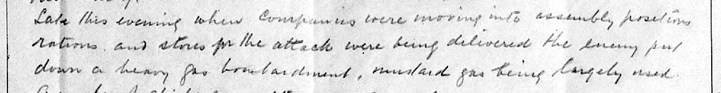 Late this evening when Companies were moving into assembly positions
rations and stores for the attack were being delivered the enemy put
down a heavy gas bombardment, mustard gas being largely used.